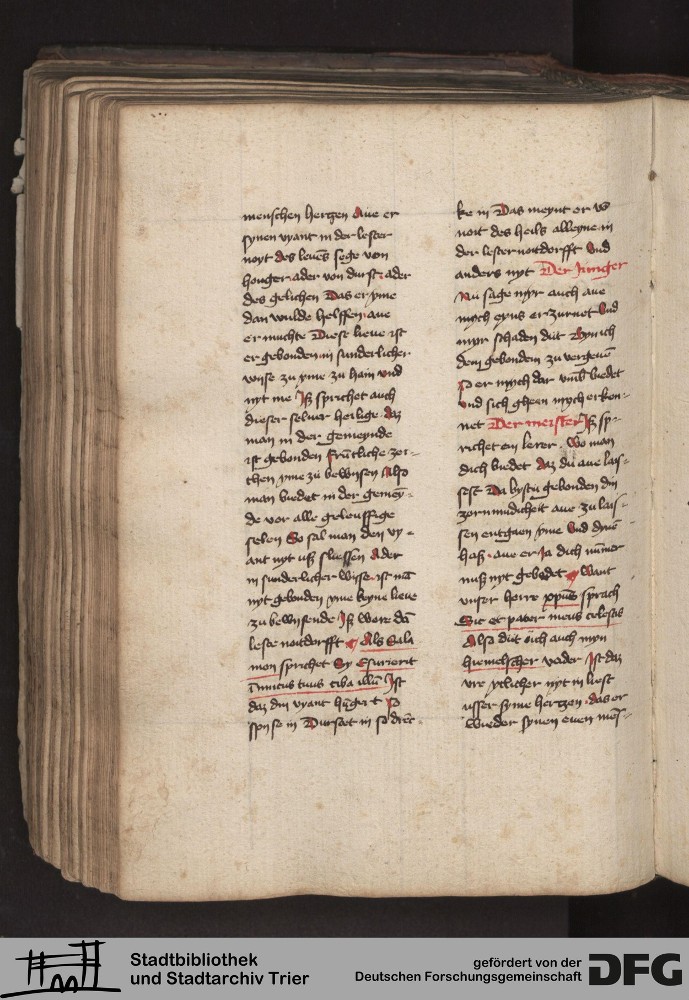 menschen hertzen Aue er
synen vyant in der lester
noyt des leuēs sege von
honger ader von durst ader
des gelichen Das er yme
dan wulde helffen aue
er muchte Diese lieue ist
er gebonden in sunderlicher
wise zu yme zu hain vnd
nyt me Jß sprichet auch
dieser seluer heilige daz
man in der gemeynde
ist gebonden fruntliche zei-
chen yme zu bewysen Also
man biedet in der gemey-
de vor alle geleuffige
selen So sal man den vy-
ant nyt uß sliessen Ader
in sunderlicher wyse ist mā
nyt gebonden yme keyne lieue
zu bewysende Jß were dā
leste noitdorfft Als Sala
mon sprichet Sy Esurierit
inimicus tuus ciba illū Jst
daz din vyant hūgert so
spyse in Dursтet in so drēc
ke in Das meynt er vō
noit des heils alleyne in
der lester noitdorfft Vnd
anders nyt Der Junger
Nu sage myr auch aue
mych eyns erzurnet Vnd
myr schaden dūt Byn ich
dem gebondem zu vergeuē
So er mych dar vmb biedet
vnd sich gheen mych erken-
net Der meister Jß sp-
richet eyn lerer Wo man
dich biedet daz du aue lais-
sest Da bystu gebonden din
zornmudicheit aue zu lais-
sen entgaen yme Vnd dynē
haß aue er Ja dich nūmer
muß nyt gebedet Want
vnser herre xpūs sprach
Sic et pater meus celestis
Also dūt uch auch myn
hiemelscher vader Jst daz
vre ytlicher nyt in liest
usser syme hertzen das er
wieder synen euen mēs-
Stadtbibliothek
und Stadtarchiv Trier
gefördert von der
Deutschen Forschungsgemeinschaft
DFG